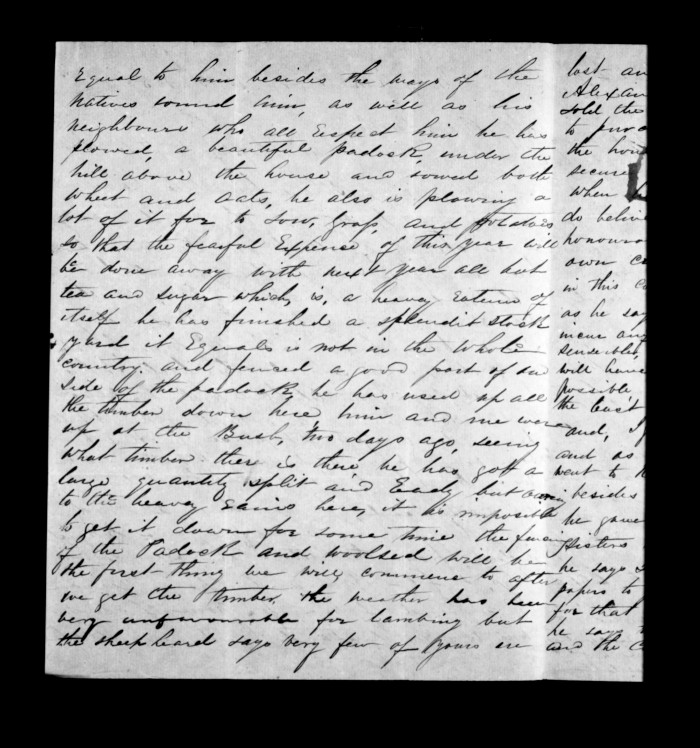 Equal to him besides the ways of the
natives round him, as well as his
neighbours who all Espect him he has
plowed, a beautiful padock, under the
hill above the house and sowed both
wheat and oats, he also is plowing a
lot of it for to sow, grass, and potatoes
so that the fearful Expense of this year will
be done away with next year all but
tea and sugar which, is, a heavy Eatem of
itself he has finished a splendit stock
yard it Equals is not in the whole
country. and fenced a good part of on
side of the padock, he has used up all
the timber down here him and me were
up at the Bush, two days ago, seeing
what timber ther is there he has gott a
large quantity split and Eady but
to the heavy Eains here, it is imposible
to get it down for some time the
if the Padock and woolsed will be
the first thing we will commence to after
we get the timber. the weather has been
very unfavourable for lambing but
the sheepheard says very few of yours
lost an
Alexan
sold the
to
the
secure
when
do
honoura
own
in this
as he say
incur any
sensible,
will have
possible,
the
and, I
and as
went to
besides
he gave
sisters
he says
papers to
for that
he says
and the